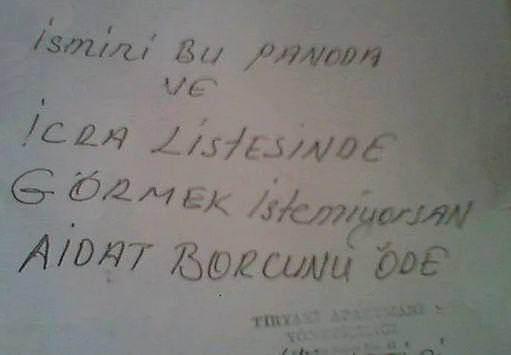 ismini BU PANODA
VE
İCRA LİStESİNDE
GÖRMEK istemiyorsAN
AİDAT BORCUNU ÖDE
TİRYAKİ APARTMANI
YÖNETİCİLİĞİ